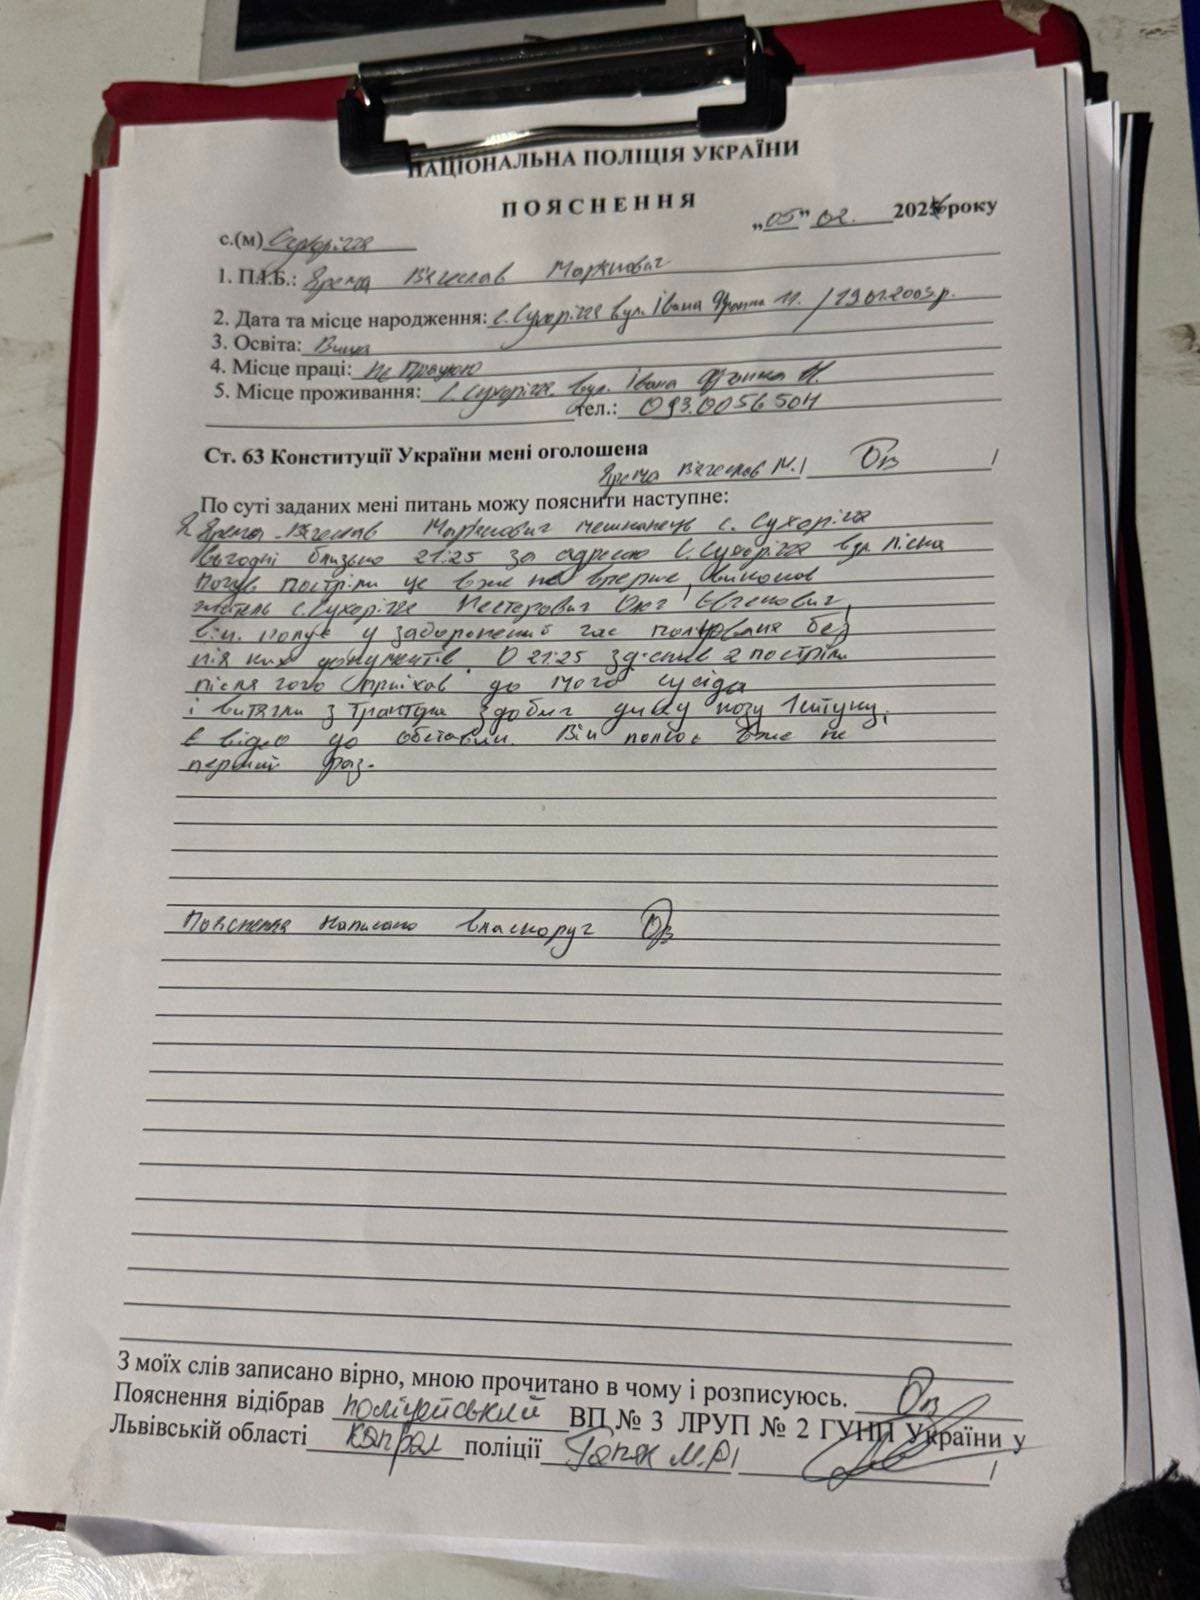 НАЦІОНАЛЬНА ПОЛІЦІЯ УКРАЇНИ
ПОЯСНЕННЯ
„05” 02. 2026 року
с.(м) Сухоріччя
1. П.І.Б.: Ярема Вячеслав Маркіянович
2. Дата та місце народження: с. Сухоріччя вул. Івана Франка 11. / 19.01.2003 р.
3. Освіта: Вища
4. Місце праці: Не Працюю
5. Місце проживання: с. Сухоріччя вул. Івана Франка 11.
тел.: 093.0056504
Ст. 63 Конституції України мені оголошена
Ярема Вячеслав М.
По суті заданих мені питань можу пояснити наступне:
Я Ярема Вячеслав мешканець с. Сухоріччя
сьогодні близько 21:25 за адресою С. Сухоріччя вул. Лісна
почув постріли це вже не вперше, виконав
житель с. Сухоріччя Нестерович Олег Євгенович,
він полює у заборонений час полювання без
ніяких документів. О 21:25 здійснив 2 постріли
після чого приїхав до мого сусіда
і витягли з трактора здобич дику козу 1 штуку,
є відео до обставин. Він полює вже не
перший раз.
Пояснення написано власноруч
З моїх слів записано вірно, мною прочитано в чому і розписуюсь.
Пояснення відібрав поліцейський ВП № 3 ЛРУП № 2 ГУНП України у
Львівській області капрал поліції М.